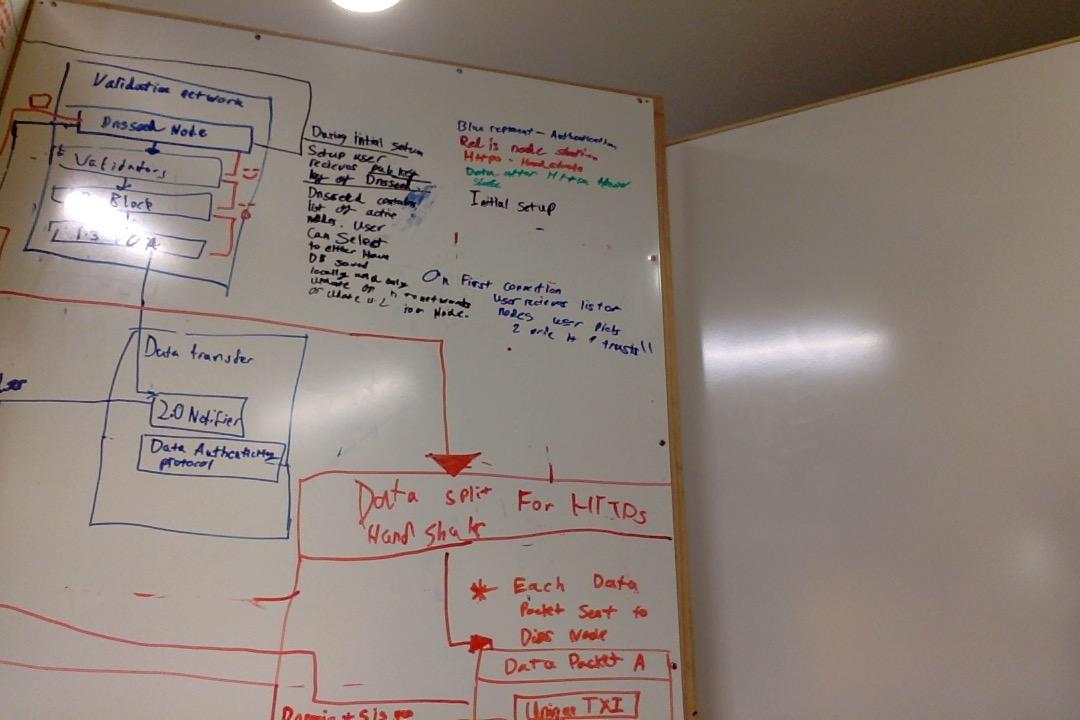 Validation network
Dnsseed Node
Validators
Block
During intial setup
Setup user
recieves pub key
key of Dnsseed
Dnsseed contains
list of active
nodes. User
Can Select
to either Have
DB saved
locally and only
update
Node.
Blue represent - Authentication
Red is node
Https - Handshake
Data after Https Hand
Initial setup
On First connection
user recieves list of
nodes user picks
2 trusts!!
Data transfer
2.0 Notifier
Data Authenticity
protocol
Data split For HTTPs
Hand shake
* Each Data
Packet Sent to
Node
Data Packet A
Unique TXI